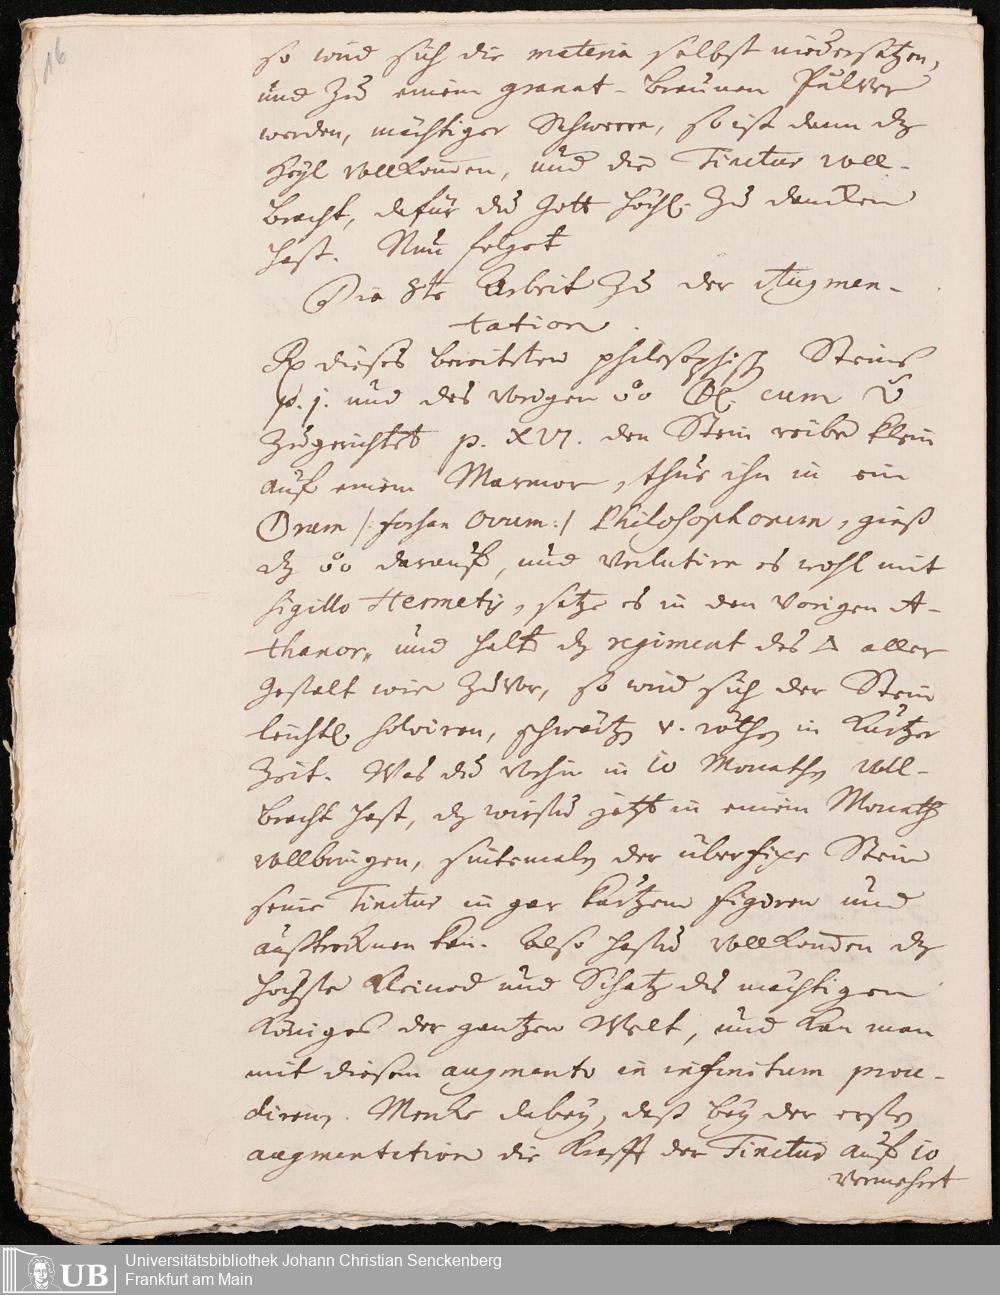 16
so wird sich die materia selbst niedersetzen,
und zu einem granat-braunen Pulver
werden, mächtiger Schwere, so ist dann dz
Heyl vollkommen, und die Tinctur voll-
bracht, dafür du Gott höchl. zu dancken
hast. Nun folget
Die 8te Arbeit zu der Augmen-
tation.
Rp dieses bereiteten philosophisch Steins
p. j. und des vorigen
zugerichtet p. XVI. den Stein reibe klein
auf einem Marmor, thue ihn in ein
Oram /: forsan Ovum :/ Philosophorum, gieß
dz darauf, und verlutire es wohl mit
sigillo Hermetis, setze es in den vorigen A-
thanor, und halte dz regiment des △ aller
gestalt wie zuvor, so wird sich der Stein
leichtl. solviren, schwärtz v. röth in kurtzer
Zeit. Was du vorhin in 10 Monathen voll-
bracht hast, dz wirstu jetzt in einem Monath
vollbringen, sintemalen der überfixe Stein
seine Tinctur in gar kurtzem figiren und
austrocknen kan. Also hastu vollkommen dz
höchste Kleinod und Schatz des mächtigen
Königes der gantzen Welt, und kan man
mit diesem augmento in infinitum proce-
diren. Mercke dabey, daß bey der ersten
augmentation die Krafft der Tinctur auf 10
vermehret
UB
Universitätsbibliothek Johann Christian Senckenberg
Frankfurt am Main